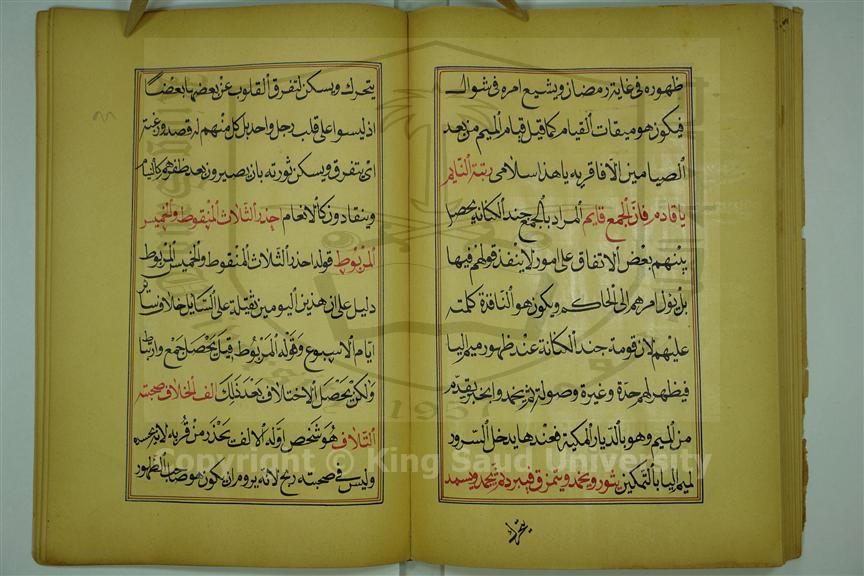 ظهوره فى غاية رمضان ويشيع امره فى شوال
فيكون هو ميقات القيام كما قيل قيام الميم من بعد
الصيام مين الافاقربه يا هذا سلامى رتبة النايم
يا قادم فان الجمع قايم المراد بالجمع جند الكنانة يحصل
بينهم بعض الاتفاق على امور لا ينفذ قولهم فيها
بل يؤل امرهم الى الحاكم ويكون هو النافذة كلمته
عليهم لان قومة جند الكنانة عند ظهور ميم اليا
فيظهر لهم حدة وغيرة وصولة ثم يخمد وا بخبر يقدم
من الميم وهو بالديار المكية فعندها يدخل السرور
لميم اليا بالتمكين يثور ويخمد ويتمزق فيبرد ثم يجمد ويسمد
يتحرك
يتحرك ويسكن لتفرق القلوب عن بعضها بعضا
اذ ليسوا على قلب رجل واحد بل كل منهم له قصد ورغبة
اى يتفرق ويسكن ثورته بان يصيرون بعد ظفرهم كالنيام
وينقادون كالانعام احذر الثلاث المنقوط والخميس
المربوط قوله احذر الثلاث المنقوط والخميس المربوط
دليل على ان هذين اليومين ثقيلة على السكايل خلاف سائر
ايام الاسبوع وقوله المربوط قيل يحصل جمع وارتباط
ولكن يحصل الاختلاف بعد ذلك الف الخلاف صحبته
التلاف هو شخص اوله الالف يحذر من قربه لانه
وليس فى صحبته ربح لانه يروم ان يكون هو صاحب الظهور
Copyright © King Saud University
1957